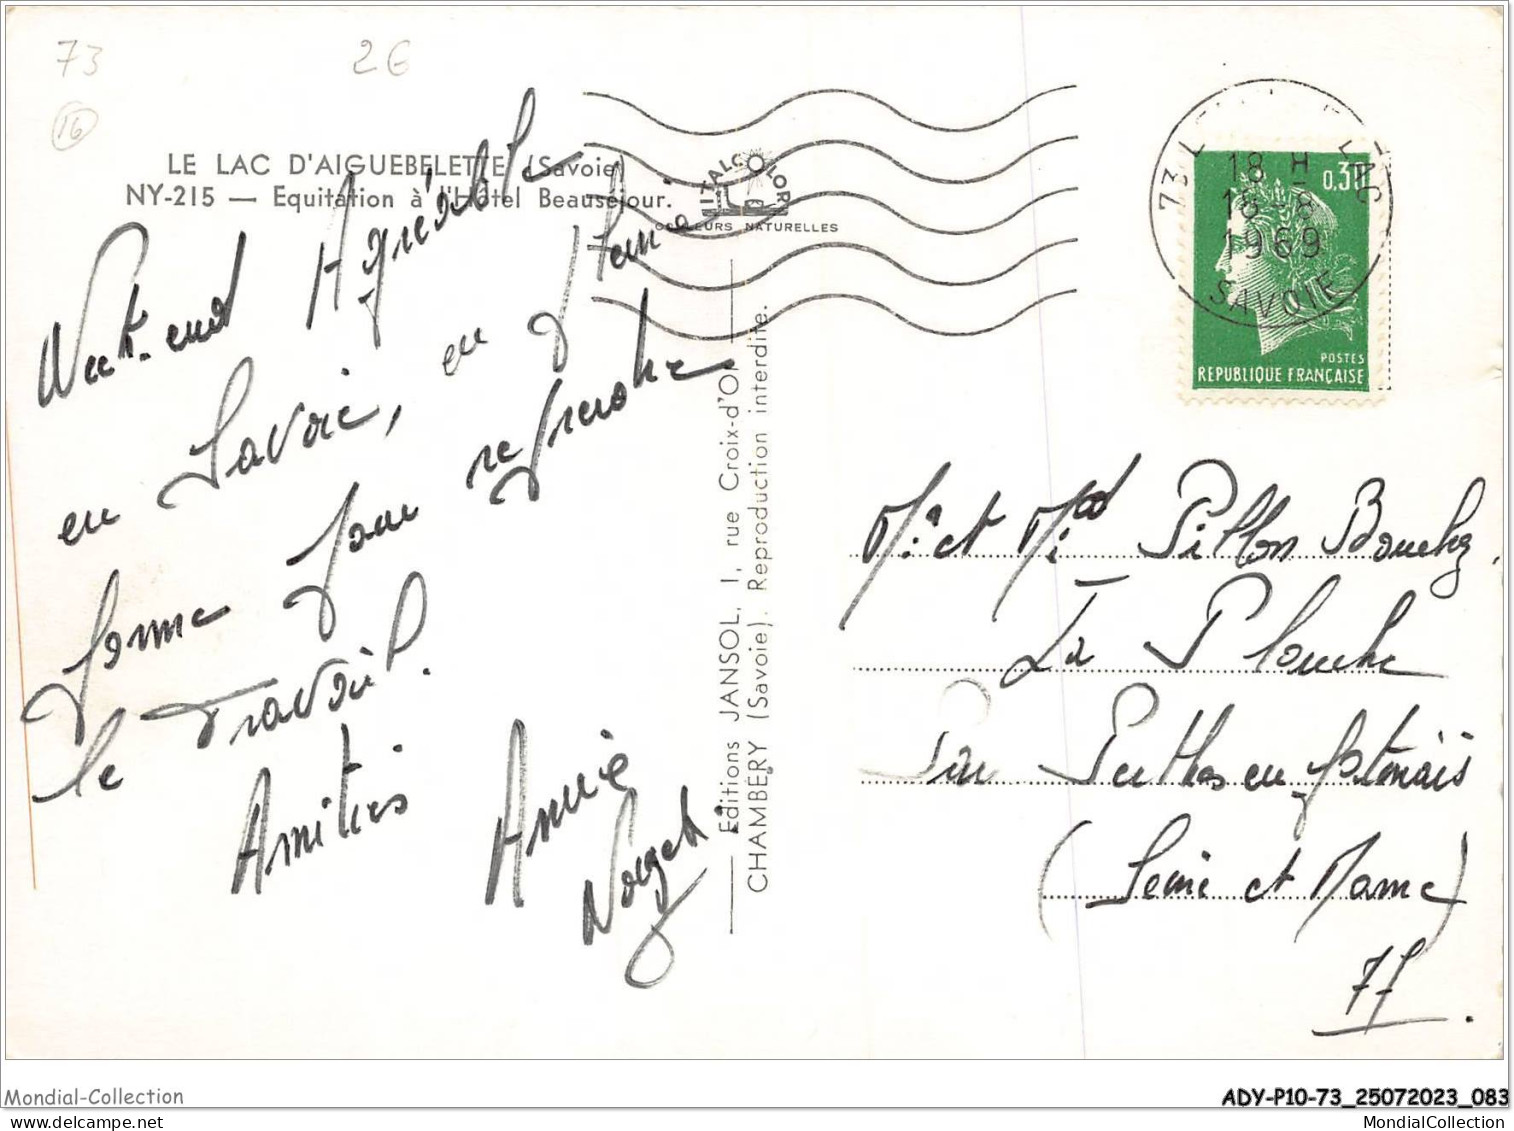 73
2€
16
LE LAC D'AIGUEBELETTE (Savoie)
NY-215 — Equitation à l'Hôtel Beauséjour.
ITALCOLOR
COULEURS NATURELLES
Week-end Agréable
en Savoie, en pleine
forme pour reprendre
le travail.
Amitiés
Annie
Editions JANSOL, 1, rue Croix-d'Or
CHAMBÉRY (Savoie). Reproduction interdite.
73
18 H
18-8
1969
SAVOIE
0.30
POSTES
REPUBLIQUE FRANÇAISE
Mr. et Md Pillon Bouchez
La Plouche
Par Perthes en Gatinais
(Seine et Marne)
77.
Mondial-Collection
ADY-P10-73_25072023_083
MondialCollection